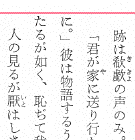 跡は欷歔の声のみ。
「君が家に送り行
に。」彼は物語するう
たるが如く、恥ぢて我
人の見るが厭はしさ